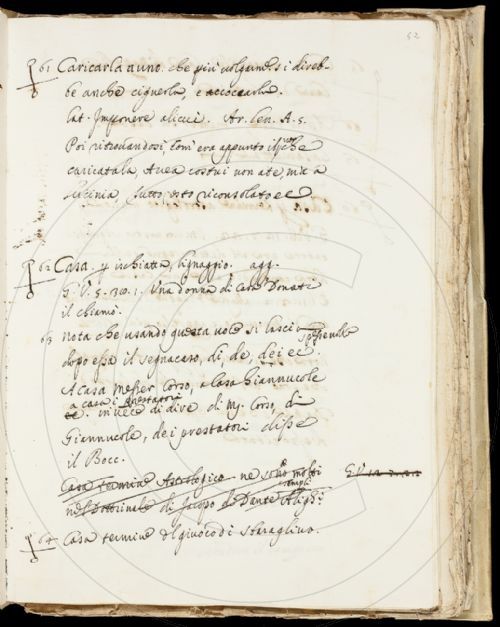 52
61 Caricarla a uno. che più volgarmte si direb-
be anche cignerla, e accoccarla.
lat. Imponere alicui. Ar. Len. A. 5.
Poi ritrovandosi, Comi era appunto il
caricatala, Avea costui non a te, ma a
Licinia, tutto, riconsolato
62 Casa. p ischiatta, lignaggio. agg.
G. V. 5. Una donna di Casa Donati
il chiamò.
63 Nota che usando questa voce si lascia sovente
dopo essa il segnacaso, di, de, dei ec.
A casa Messer Corso, a casa Giannucole
a casa i prestatori
ec. in vece di dire di M. Corso, di
Giannucole, dei prestatori disse
il Bocc.
Casa termine Astrologico ne sono molti
esempli
nel Dottrinale di Jacopo di Dante Alighi:
64 Casa termine del giuoco di sbaraglino.